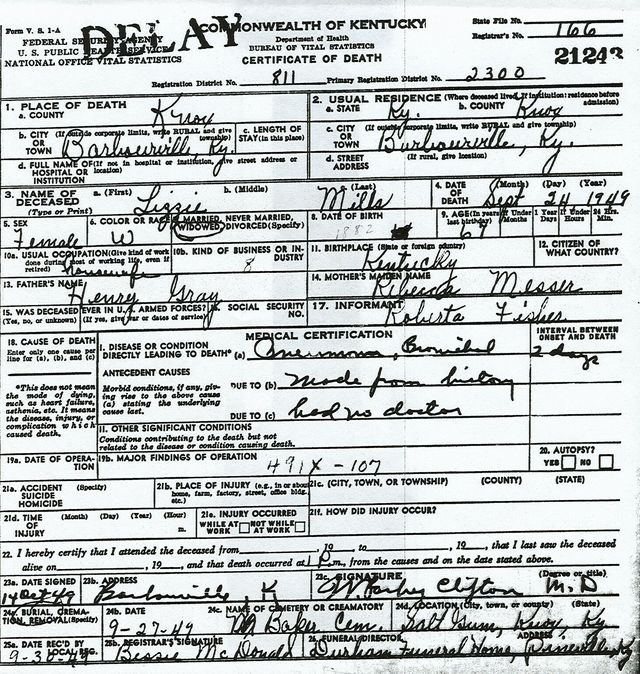 Form V. S. 1-A
DELAY
COMMONWEALTH OF KENTUCKY
State File No.
FEDERAL SECURITY AGENCY
Department of Health
Registrar's No. 166
U. S. PUBLIC HEALTH SERVICE
BUREAU OF VITAL STATISTICS
NATIONAL OFFICE VITAL STATISTICS
CERTIFICATE OF DEATH
21243
Registration District No. 811 Primary Registration District No. 2300
1. PLACE OF DEATH
a. COUNTY Knox
2. USUAL RESIDENCE (Where deceased lived. If institution: residence before admission)
a. STATE Ky. b. COUNTY Knox
b. CITY (If outside corporate limits, write RURAL and give township) OR TOWN Barbourville, Ky.
c. LENGTH OF STAY (in this place)
c. CITY (If outside corporate limits, write RURAL and give township) OR TOWN Barbourville, Ky.
d. FULL NAME OF (If not in hospital or institution, give street address or location) HOSPITAL OR INSTITUTION
d. STREET ADDRESS (If rural, give location)
3. NAME OF DECEASED (Type or Print)
a. (First) Lizzie b. (Middle) c. (Last) Mills
4. DATE OF DEATH (Month) (Day) (Year) Sept 24 1949
5. SEX Female
6. COLOR OR RACE W
7. MARRIED, NEVER MARRIED, WIDOWED, DIVORCED (Specify)
8. DATE OF BIRTH 1882
9. AGE (In years last birthday) 67 If Under 1 Year Months Days If Under 24 Hrs. Hours Min.
10a. USUAL OCCUPATION (Give kind of work done during most of working life, even if retired) Housewife
10b. KIND OF BUSINESS OR INDUSTRY 8
11. BIRTHPLACE (State or foreign country) Kentucky
12. CITIZEN OF WHAT COUNTRY?
13. FATHER'S NAME Henry Gray
14. MOTHER'S MAIDEN NAME Rebecca Messer
15. WAS DECEASED EVER IN U.S. ARMED FORCES? (Yes, no, or unknown) (If yes, give war or dates of service)
16. SOCIAL SECURITY NO.
17. INFORMANT Roberta Fisher
18. CAUSE OF DEATH
Enter only one cause per line for (a), (b), and (c)
MEDICAL CERTIFICATION
INTERVAL BETWEEN ONSET AND DEATH
I. DISEASE OR CONDITION DIRECTLY LEADING TO DEATH* (a) Pneumonia, Bronchial 2 days
*This does not mean the mode of dying, such as heart failure, asthenia, etc. It means the disease, injury, or complication which caused death.
ANTECEDENT CAUSES
Morbid conditions, if any, giving rise to the above cause (a) stating the underlying cause last.
DUE TO (b) Made from history
DUE TO (c) had no doctor
II. OTHER SIGNIFICANT CONDITIONS
Conditions contributing to the death but not related to the disease or condition causing death.
19a. DATE OF OPERATION
19b. MAJOR FINDINGS OF OPERATION
491X - 107
20. AUTOPSY? YES NO
21a. ACCIDENT SUICIDE HOMICIDE (Specify)
21b. PLACE OF INJURY (e.g., in or about home, farm, factory, street, office bldg. etc.)
21c. (CITY, TOWN, OR TOWNSHIP) (COUNTY) (STATE)
21d. TIME OF INJURY (Month) (Day) (Year) (Hour) m.
21e. INJURY OCCURRED WHILE AT WORK NOT WHILE AT WORK
21f. HOW DID INJURY OCCUR?
22. I hereby certify that I attended the deceased from , 19 to , 19 , that I last saw the deceased
alive on , 19 , and that death occurred at 1 P.m., from the causes and on the date stated above.
23a. DATE SIGNED 14 Oct 49
23b. ADDRESS Barbourville, K
23c. SIGNATURE Clifton (Degree or title) M. D
24a. BURIAL, CREMATION, REMOVAL (Specify)
24b. DATE 9-27-49
24c. NAME OF CEMETERY OR CREAMATORY Baker Cem.
24d. LOCATION (City, town, or county) (State) Salt Gum, Knox, Ky
25a. DATE REC'D BY LOCAL REG. 9-30-49
25b. REGISTRAR'S SIGNATURE Bessie McDonald
26. FUNERAL DIRECTOR ADDRESS Durham Funeral Home, Pineville, Ky